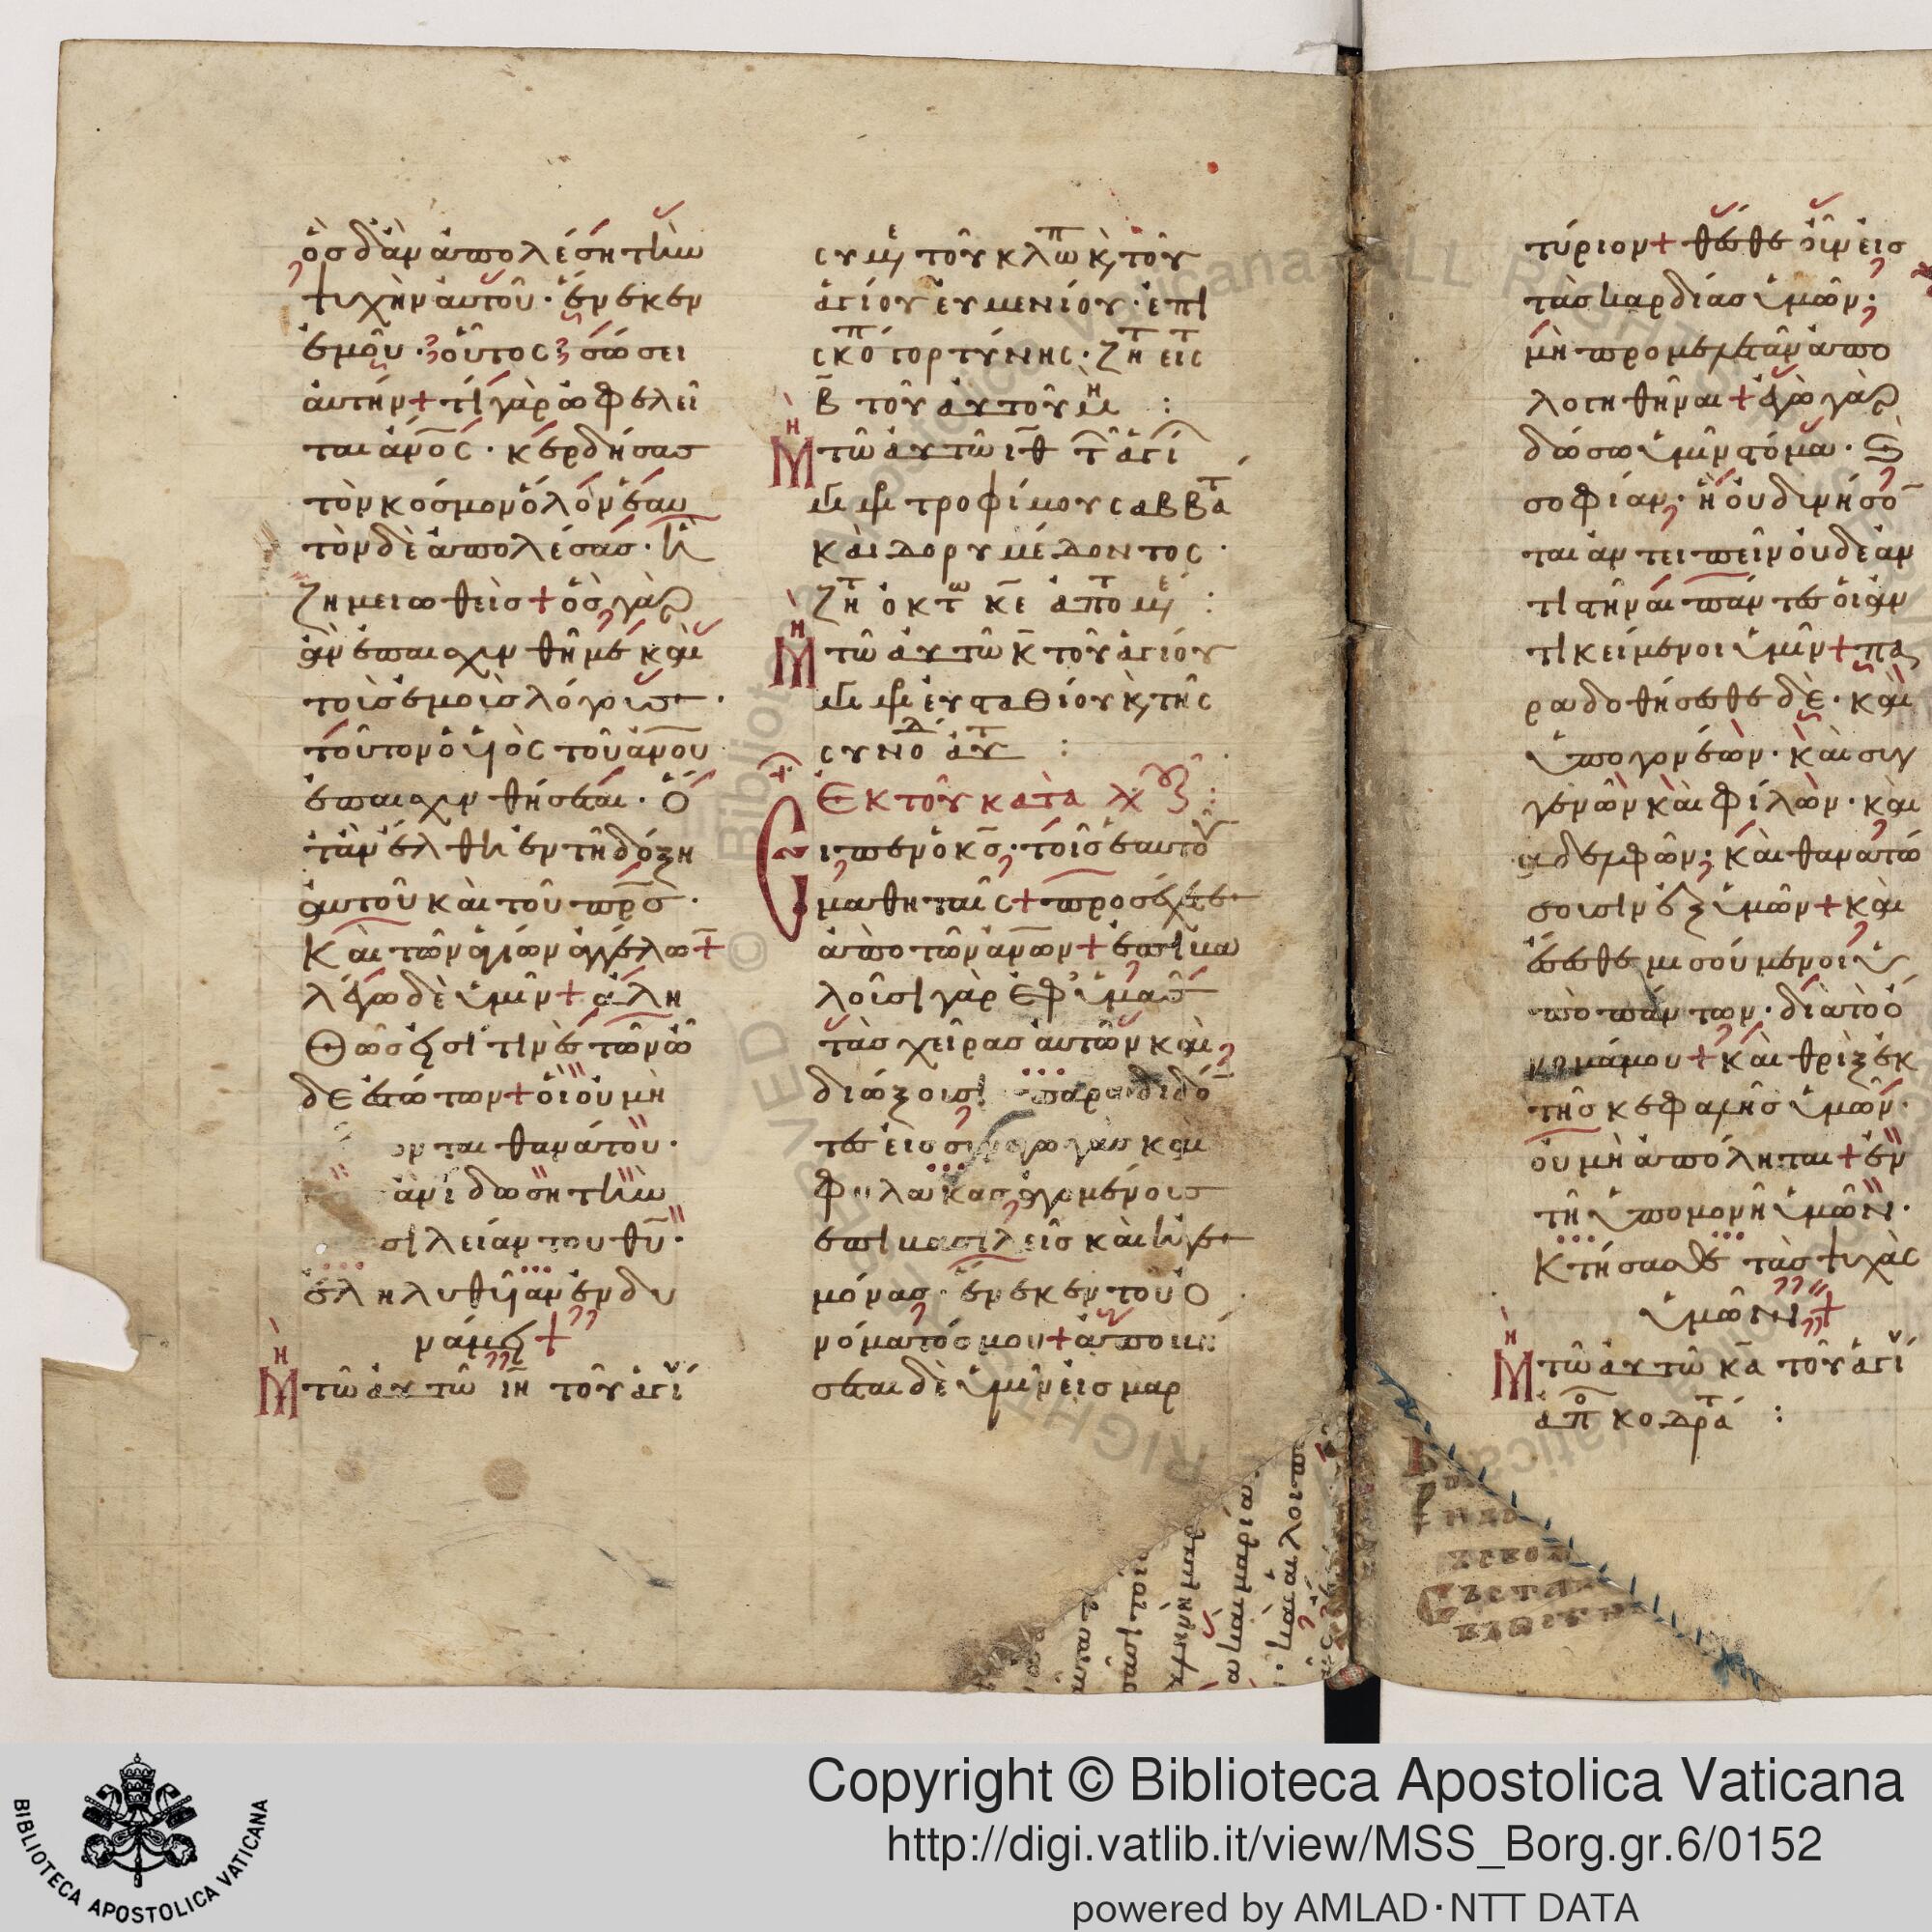 ὃσ δ' ἂν ἀπολέση τὴν
ψυχὴν αὐτοῦ· ἕνεκεν
ἐμοῦ· οὗτος σώσει
αὐτήν + τί γὰρ ὠφελεῖ
ται ἄνος· κερδήσασ
τὸν κόσμον ὅλον ἑαυ
τὸν δὲ ἀπολέσασ· ἢ
ζημειωθείσ + ὃσ γὰρ
ἂν ἐπαισχυνθῆ με καὶ
τοὺσ ἐμοὺσ λόγουσ·
τοῦτον ὁ υἱὸς τοῦ ἀνου
ἐπαισχυνθήσεται· ὅ
τὰν ἔλθη ἐν τῆ δόξη
αὐτοῦ καὶ τοῦ πρσ·
Καὶ τῶν ἁγίων ἀγγέλω +
λέγω δὲ ὑμῖν + ἀλη
Θῶσ εἰσί τινὲσ τῶν ὧ
δε ἑστώτων + οἳ οὐ μὴ
ονται θανάτου·
ἂν ἴδωση τὴν
σιλείαν του θῦ·
ἐληλυθυῖαν ἐν δυ
νάμει +
Μη τῶ αὐτῶ ιη τοῦ ἁγί
ευμενίου· ἐπι
σκο γορτύνης· ζητ εις
β τοῦ αὐτοῦ μη :
Μη τῶ αὐτῶ ιθ τ ἁγί
μμ τροφίμου σαββατ
καὶ δορυμέδοντος·
ζητ ὀκτω κε ἀποτ με :
Μη τῶ αὐτῶ κ τοῦ ἁγίου
μμ εὐσταθίου κ τῆς
συνοδ αὐτ :
Ἐκ τοῦ κατὰ λουκ :
Ειπεν ὁ κσ· τοῖσ ἑαυτοῦ
μαθηταῖς + προσέχετε
ἀπὸ τῶν ἀνων + ἐπιβα
λοῦσι γὰρ ἐφ' ὑμᾶσ
τὰσ χεῖρασ αὐτῶν καὶ
διώξουσι παραδιδό
τεσ εἰσ συναγωγὰσ καὶ
φυλακασ ἀγομένουσ
ἐπι βασιλεῖσ καὶ ἡγε
μόνασ· ἕνεκεν του ὀ
νόματόσ μου + ἀποβη
σεται δὲ ὑμῖν εἰσ μαρ
τύριον + θέσθε οὖν εἰσ
τὰσ καρδίασ ὑμῶν·
μὴ προμελετᾶν ἀπο
λογηθῆναι + ἐγὼ γὰρ
δώσω ὑμῖν στόμα· καὶ
σοφίαν· ἧ οὐ δυνήσο
ται ἀντειπεῖν οὐδὲ ἀν
τιστῆναι πάντεσ οἱ ἀν
τικείμενοι ὑμῖν + πα
ραδοθήσεσθε δὲ· καὶ
ὑπο γονέων· καὶ συγ
γενῶν καὶ φίλων· καὶ
ἀδελφῶν· καὶ θανατώ
σουσιν ἐξ ὑμῶν + καὶ
ἔσεσθε μισούμενοι ὑ
πὸ πάντων· διὰ τὸ ὄ
νομά μου + καὶ θρὶξ ἐκ
τῆσ κεφαλῆσ ὑμῶν·
οὐ μὴ ἀπόληται + ἐν
τῆ ὑπομονῆ ὑμῶν·
Κτήσασθε τὰσ ψυχὰς
ὑμῶν +
Μη τῶ αὐτῶ κα τοῦ ἁγί
ἀπο κοδρατ :
Copyright © Biblioteca Apostolica Vaticana
http://digi.vatlib.it/view/MSS_Borg.gr.6/0152
powered by AMLAD·NTT DATA
BIBLIOTECA APOSTOLICA VATICANA